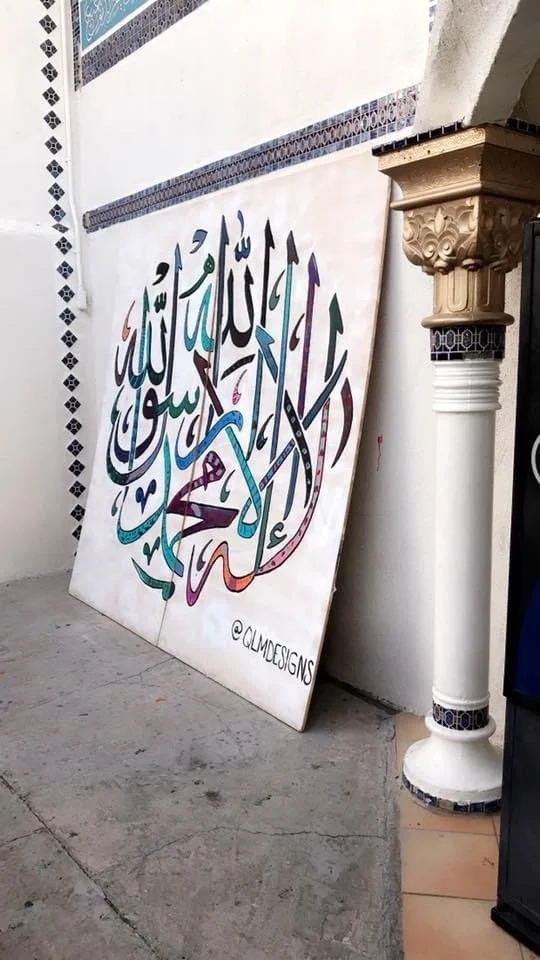 لا إله إلا الله محمد رسول الله
@QLMDESIGNS